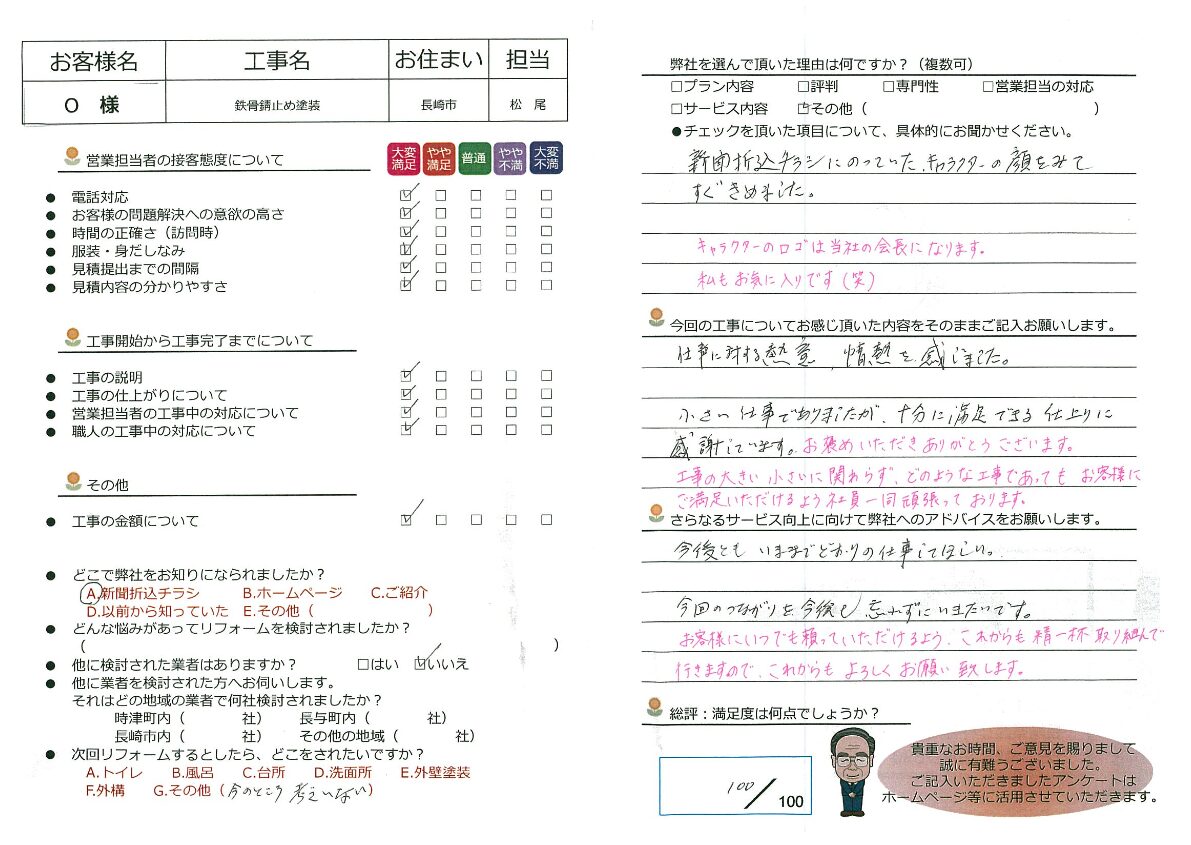 お客様名 工事名 お住まい 担当
O 様 鉄骨錆止め塗装 長崎市 松 尾
営業担当者の接客態度について 大変満足 やや満足 普通 やや不満 大変不満
● 電話対応 ☑ □ □ □ □
● お客様の問題解決への意欲の高さ ☑ □ □ □ □
● 時間の正確さ(訪問時) ☑ □ □ □ □
● 服装・身だしなみ ☑ □ □ □ □
● 見積提出までの間隔 ☑ □ □ □ □
● 見積内容の分かりやすさ ☑ □ □ □ □
工事開始から工事完了までについて
● 工事の説明 ☑ □ □ □ □
● 工事の仕上がりについて ☑ □ □ □ □
● 営業担当者の工事中の対応について ☑ □ □ □ □
● 職人の工事中の対応について ☑ □ □ □ □
その他
● 工事の金額について ☑ □ □ □ □
● どこで弊社をお知りになられましたか?
A.新聞折込チラシ B.ホームページ C.ご紹介
D.以前から知っていた E.その他( )
● どんな悩みがあってリフォームを検討されましたか?
( )
● 他に検討された業者はありますか? □はい ☑いいえ
● 他に業者を検討された方へお伺いします。
それはどの地域の業者で何社検討されましたか?
時津町内( 社) 長与町内( 社)
長崎市内( 社) その他の地域( 社)
● 次回リフォームするとしたら、どこをされたいですか?
A.トイレ B.風呂 C.台所 D.洗面所 E.外壁塗装
F.外構 G.その他(今のところ 考えいない)
弊社を選んで頂いた理由は何ですか?(複数可)
□プラン内容 □評判 □専門性 □営業担当の対応
□サービス内容 ☑その他( )
●チェックを頂いた項目について、具体的にお聞かせください。
新聞折込チラシにのっていた、キャラクターの顔をみて
すぐきめました。
キャラクターのロゴは当社の会長になります。
私もお気に入りです(笑)
今回の工事についてお感じ頂いた内容をそのままご記入お願いします。
仕事に対する熱意、情熱を感じました。
小さい仕事でありましたが、十分に満足できる仕上りに
感謝しています。お褒めいただきありがとうございます。
工事の大きい小さいに関わらず、どのような工事であっても お客様に
ご満足いただけるよう社員一同頑張っております。
さらなるサービス向上に向けて弊社へのアドバイスをお願いします。
今後とも いままでどおりの仕事してほしい。
今回のつながりを今後も忘れずにいきたいです。
お客様にいつでも頼っていただけるよう、これからも精一杯取り組んで
行きますので、これからも よろしくお願い致します。
総評:満足度は何点でしょうか?
100/100
貴重なお時間、ご意見を賜りまして
誠に有難うございました。
ご記入いただきましたアンケートは
ホームページ等に活用させていただきます。